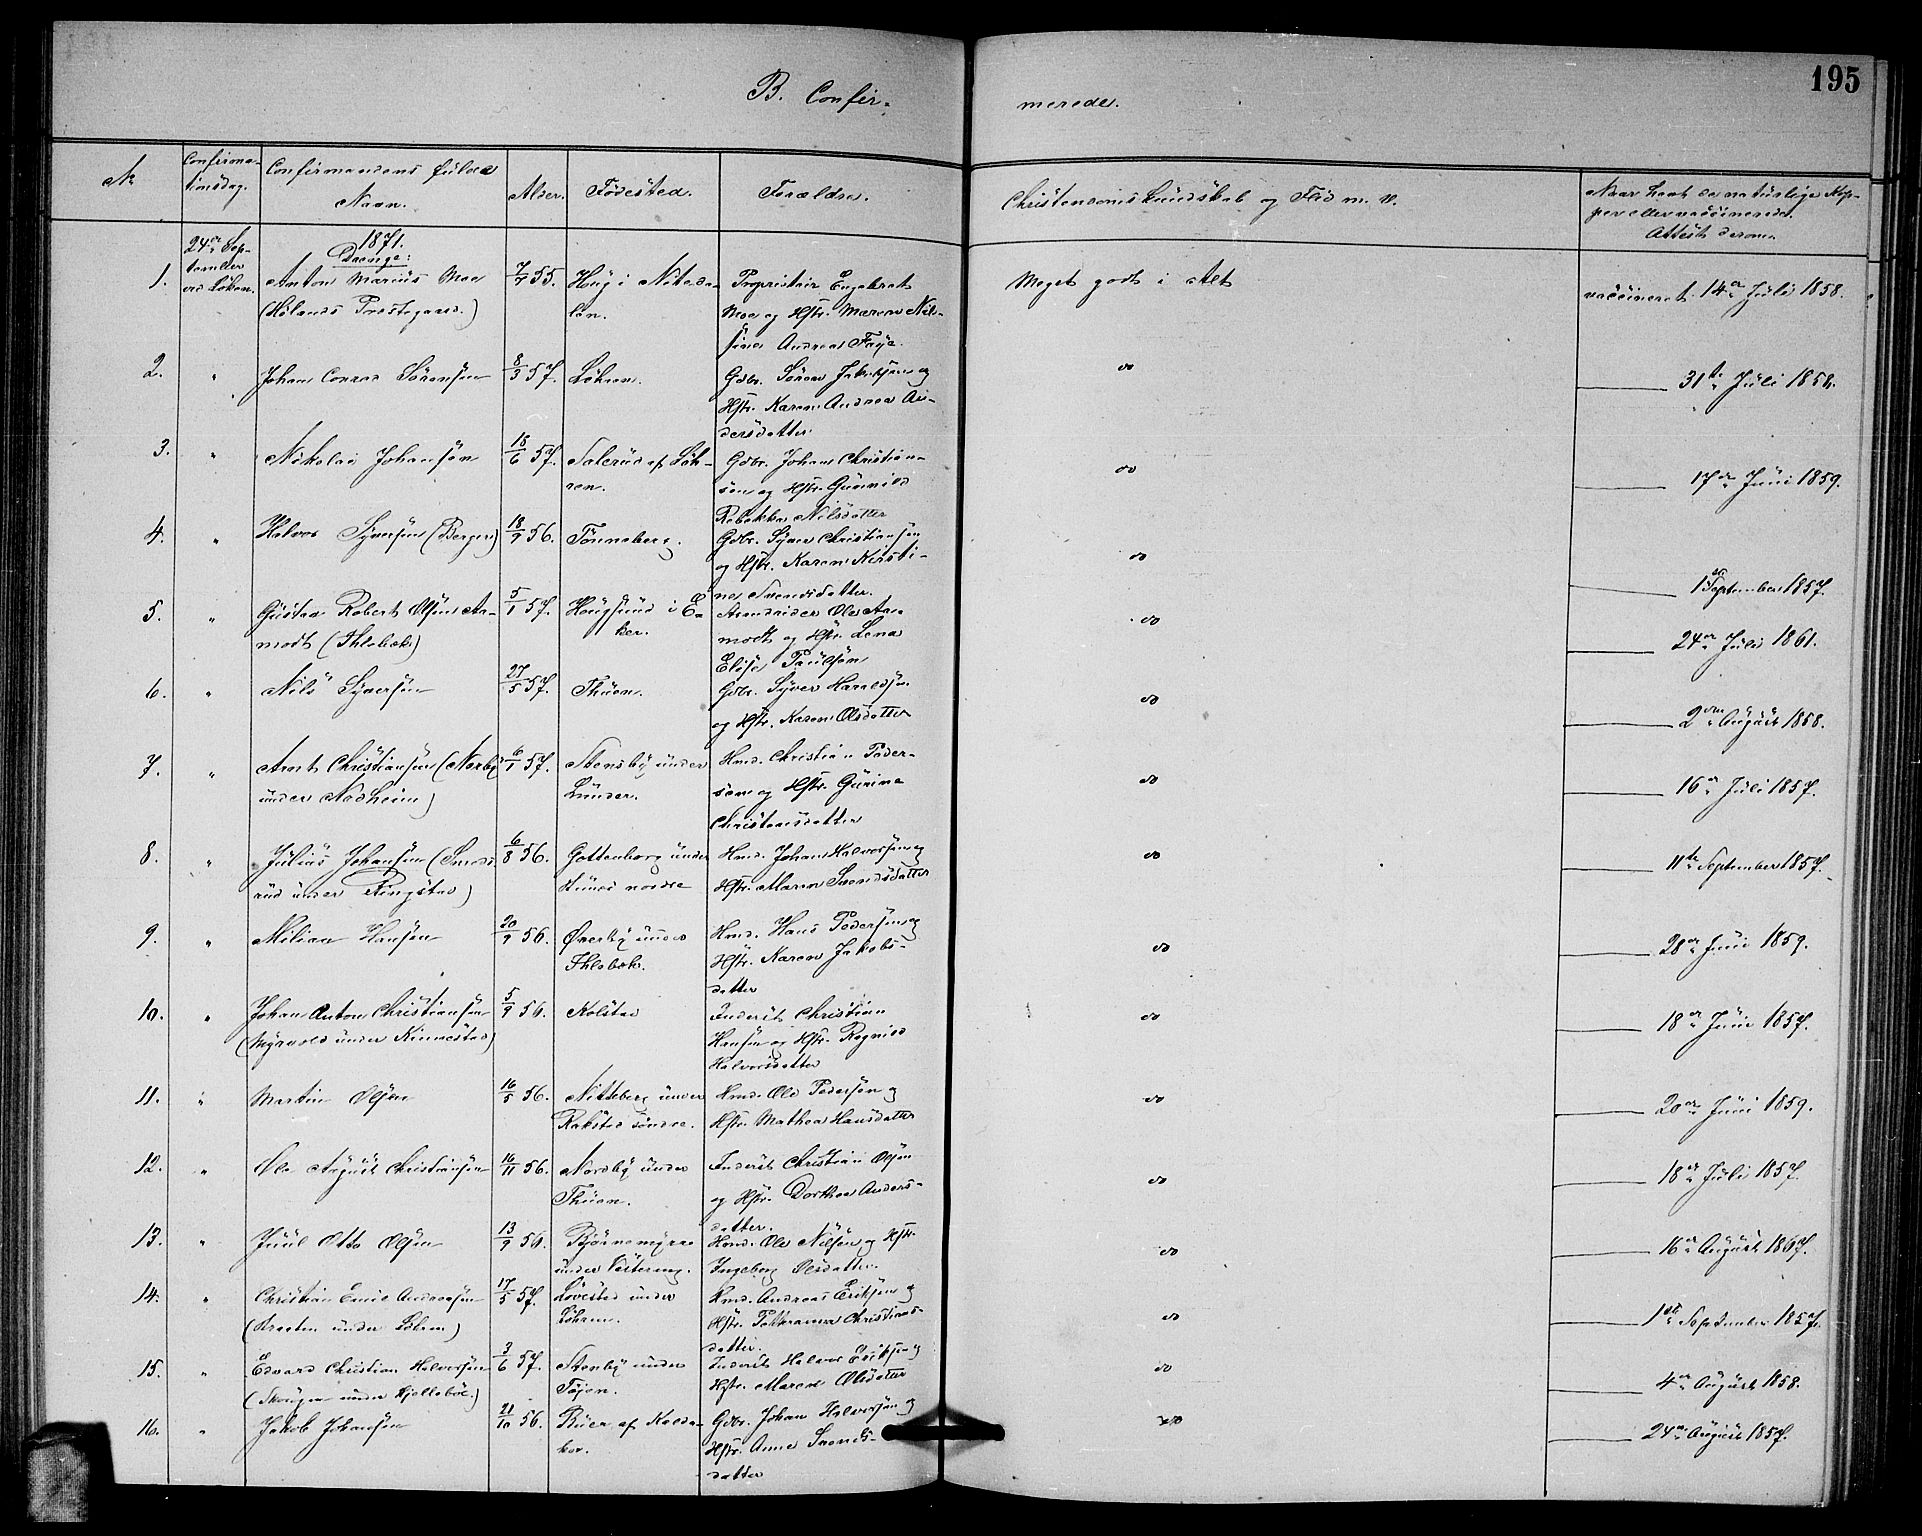 195
B. Confir-
merede.
No
Confirma-
tionsdag.
Confirmandens fulde
Navn.
Alder.
Fødested.
Forældre.
Christendomskundskab og Flid m. v.
Naar havt de naturlige Kop-
per eller vaccinerede.
Attest derom.
1871.
Drenge:
1.
24de Sep-
tember
ved Løken.
Anton Marius Moe
(Hølands Prestegaard.)
7/7 55.
Houg i Niteda-
len.
Proprietair Engebret
Moe og Hstr. Maren Nil-
sine Andrea Faye.
Meget godt i Alt
vaccineret 14de Juli 1858.
2. "
Johan Conrad Sørensen
8/3 57.
Løkren.
Gdbr. Søren Jakobsen og
Hstr. Karen Andrea An-
dersdatter
do
31te Juli 1858.
3. "
Nikolai Johansøn
18/6 57.
Salerud af Løk-
ren.
Gdbr. Johan Christian-
sen og Hstr. Gunnild
Rebekka Nilsdatter
do
17de Juni 1859.
4. "
Halvor Syversen (Berger)
18/9 56.
Tønneberg.
Gdbr. Syver Christiansøn
og Hstr. Karen Kirsti-
ne Svendsdatter.
do
1ste September 1857.
5. "
Gustav Robert Olsen Aa-
modt (Ihlebæk)
5/1 57.
Hougsund i E-
ker.
Ole Aa-
modt og Hstr. Lena
Elise Paulsøn
do
24de Juli 1861.
6. "
Nils Syversøn
27/5 57.
Thuen.
Gdbr. Syver Haraldsøn
og Hstr. Karen Olsdatter
do
2den August 1858.
7. "
Arnt Christiansen (Nærby
under Nodheim)
6/1 57.
Stensby under
Lunder.
Hmd. Christian Peder-
sen og Hstr. Gunine
Christensdatter
do
16de Juli 1857.
8. "
Julius Johansen (Smeds-
rud under Ringstad)
6/8 56.
Gottenborg under
nordre
Hmd. Johan Halvorsen og
Hstr. Maren Svendsdatter
do
11te September 1857.
9. "
Milian Hansøn
20/9 56.
Øverby under
Ihlebæk.
Hmd. Hans Pedersen og
Hstr. Karen Jakobs-
datter
do
28de Juni 1859.
10. "
Johan Anton Christiansøn
(Myrvold under Kinnestad)
5/9 56.
Kolstad
Inderst Christian
Hansen og Hstr. Ragnild
Halvorsdatter
do
18de Juni 1857.
11. "
Martin Olsen
16/5 56.
Nitteberg under
Rakstad søndre.
Hmd. Ole Pedersøn og
Hstr. Mathea Hansdatter
do
20de Juni 1859.
12. "
Ole August Christiansøn
16/11 56.
Nordby under
Thuen.
Inderst Christian Olsøn
og Hstr. Dorthea Anders-
datter.
do
18de Juli 1857.
13. "
Juul Otto Olsøn
13/9 56.
Bjørnemyren
under Vestereng.
Hmd. Ole Nilsøn og Hstr.
Ingeborg Olsdatter.
do
16de August 1867.
14. "
Christian Emil Andreasøn
(Braaten under Løkren)
17/5 57.
Lovestad under
Løkren.
Hmd. Andreas Eriksen og
Hstr. Christians-
datter.
do
1ste September 1857.
15. "
Edvard Christian Halvorsen
(Skougen under Hjellebøl.)
3/6 57.
Stenby under
Tøien.
Inderst Halvor Eriksen og
Hstr. Maren Olsdatter
do
4de August 1858.
16. "
Jakob Johansøn
21/10 56.
Buer af Kolda-
ker.
Gdbr. Johan Halvorsøn og
Hstr. Anne Svends-
datter
do
24de August 1857.